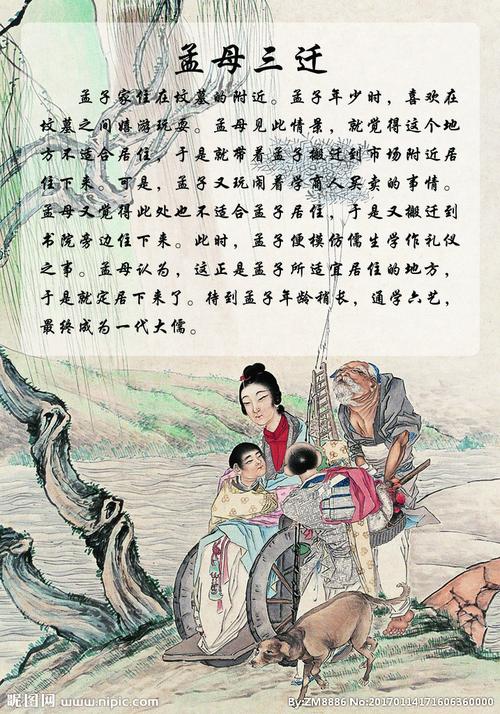 孟母三迁
孟子家住在坟墓的附近。孟子年少时，喜欢在
坟墓之间嬉游玩耍。孟母见此情景，就觉得这个地
方不适合居住，于是就带着孟子搬迁到市场附近居
住下来。可是，孟子又玩闹着学商人买卖的事情。
孟母又觉得此处也不适合孟子居住，于是又搬迁到
书院旁边住下来。此时，孟子便模仿儒生学作礼仪
之事。孟母认为，这正是孟子所适宜居住的地方，
于是就定居下来了。待到孟子年龄稍长，通学六艺，
最终成为一代大儒。
昵图网 www.nipic.com
By:ZM8886 No:20170114171606360000